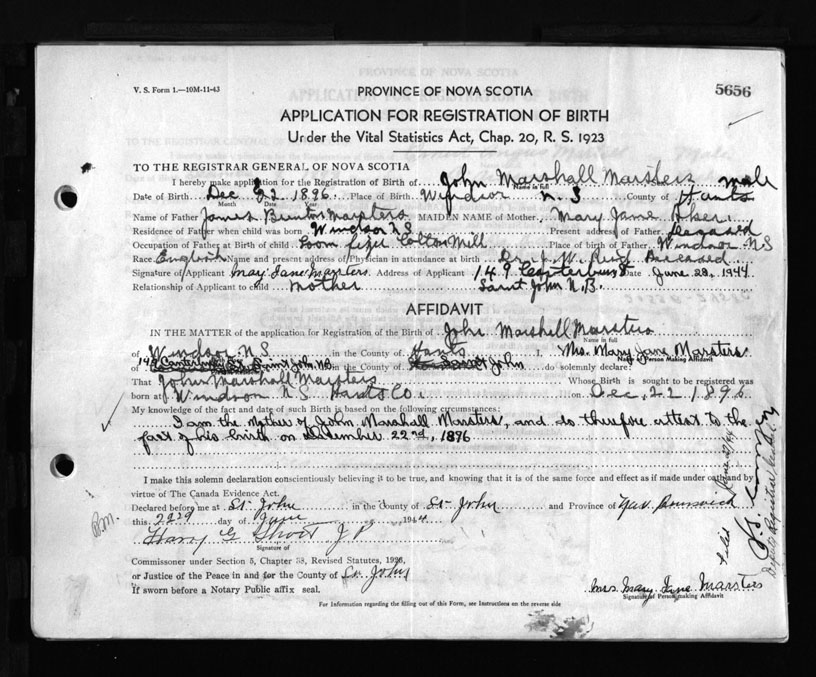 V. S. Form 1.—10M-11-43
5656
PROVINCE OF NOVA SCOTIA
APPLICATION FOR REGISTRATION OF BIRTH
Under the Vital Statistics Act, Chap. 20, R. S. 1923
TO THE REGISTRAR GENERAL OF NOVA SCOTIA
I hereby make application for the Registration of Birth of John Marshall Marsters male
Name in full
Date of Birth Dec 22 1896 Place of Birth Windsor N. S County of Hants
Month Date Year
Name of Father James Marsters MAIDEN NAME of Mother Mary Jane
Residence of Father when child was born Windsor N S Present address of Father Deceased
Occupation of Father at Birth of child Loom fixer Cotton Mill Place of birth of Father Windsor NS
Race English Name and present address of Physician in attendance at birth Dr. J. W. Reid Deceased
Signature of Applicant Mary Jane Marsters Address of Applicant 149 Canterbury St Date June 28, 1944
Relationship of Applicant to child mother Saint John N.B.
AFFIDAVIT
IN THE MATTER of the application for Registration of the Birth of John Marshall Marsters
Name in full
of Windsor N.S in the County of Hants I, Mrs. Mary Jane Marsters
Name Person Making Affidavit
of 149 Canterbury St Saint John NB in the County of John do solemnly declare:
That John Marshall Marsters Whose Birth is sought to be registered was
born at Windsor N S Hants Co. on Dec. 22 1896
My knowledge of the fact and date of such Birth is based on the following circumstances:
I am the Mother of John Marshall Marsters, and do therefore attest to the
fact of his birth on December 22nd, 1896
I make this solemn declaration conscientiously believing it to be true, and knowing that it is of the same force and effect as if made under oath and by
virtue of The Canada Evidence Act.
Declared before me at St. John in the County of St. John and Province of New Brunswick
this day of June 1944
Harry G Short J P
Signature of
Commissioner under Section 5, Chapter 38, Revised Statutes, 1926,
or Justice of the Peace in and for the County of St. John
If sworn before a Notary Public affix seal.
Mrs. Mary Jane Marsters
Signature of Person making Affidavit
For Information regarding the filling out of this Form, see Instructions on the reverse side
Filed
Deputy Registrar General